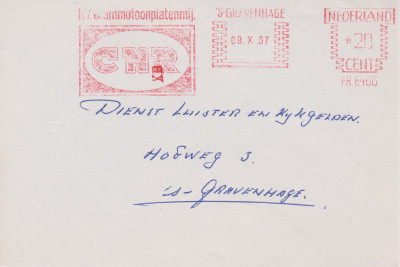 N.V. Grammofoonplatenmij.
CNR
'S-GRAVENHAGE
09. X. 67
NEDERLAND
*20
CENT
FR 6466
Dienst Luister en Kykgelden.
Hofweg 3.
's-Gravenhage.